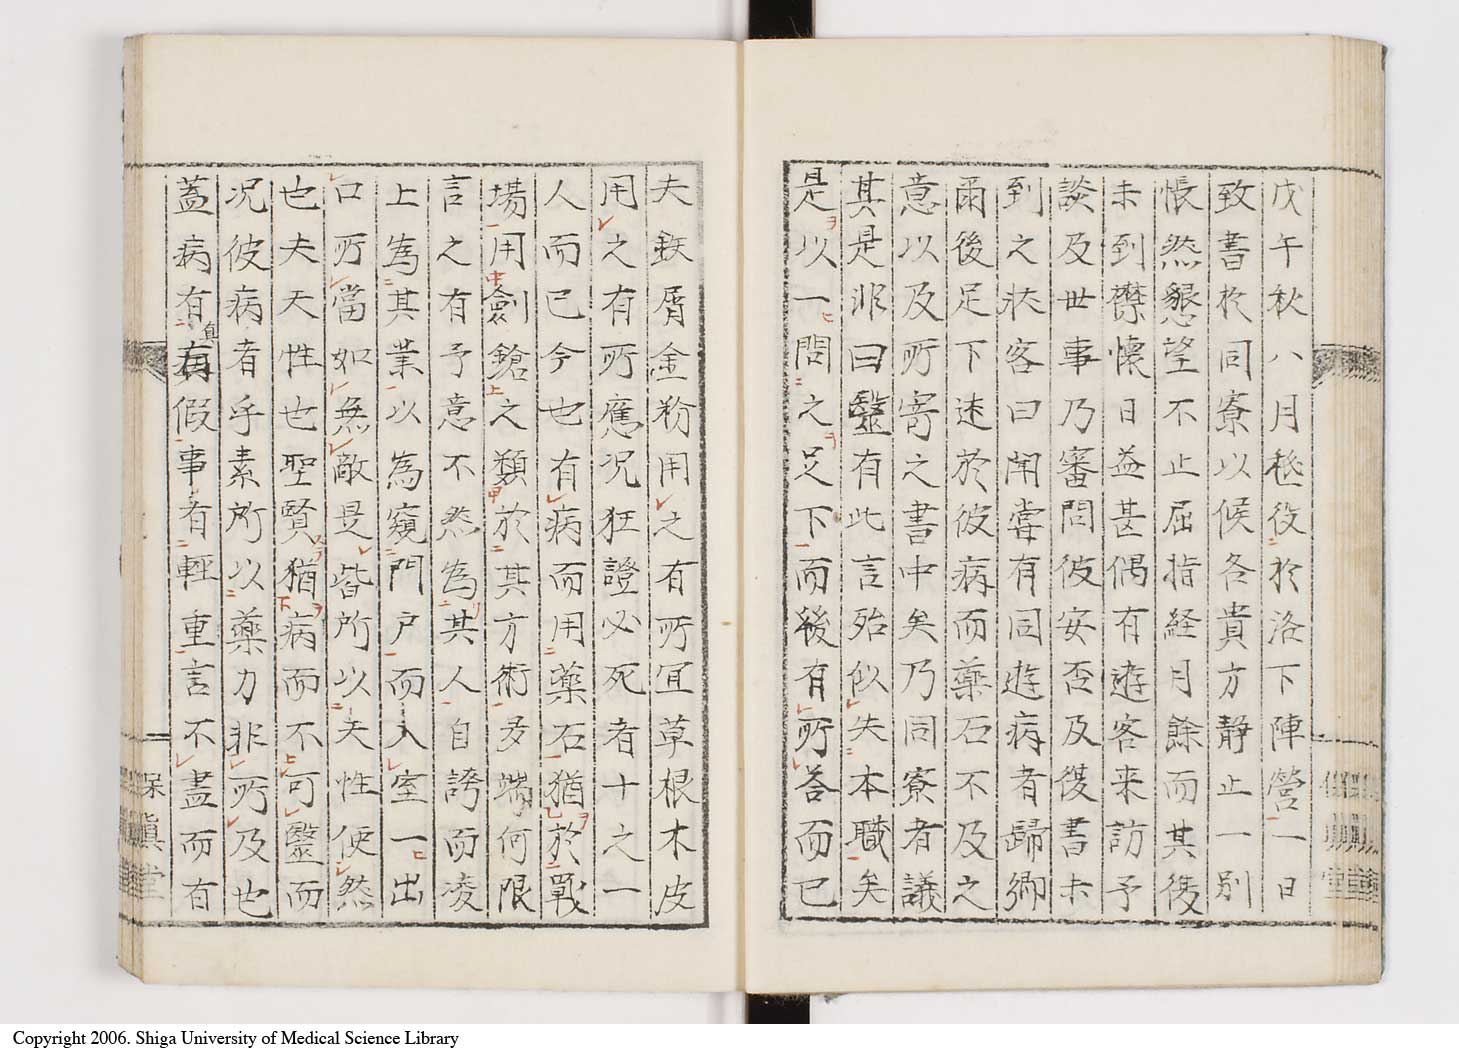 戊午秋八月極役於洛下陣營一日
致書於同寮以候各貴方靜止一別
悵然懇望不止屈指経月餘而其後
未到襟懷日益甚偶有遊客来訪予
談及世事乃審問彼安否及復書未
到之狀客曰聞嘗有同遊病者歸鄉
爾後足下速於彼病而藥石不及之
意以及所寄之書中矣乃同寮者議
其是非曰毉有此言殆似失本職矣
是以一問之足下而後有所答而已
夫鉄屑金粉用之有所宜草根木皮
用之有所應況狂證必死者十之一
人而已今也有病而用藥石猶於戰
場用劍鎗之類於其方術多端何限
言之有予意不然為其人自誇而凌
上為其業以為窺門户而入室一出
口所當如無敵是皆所以夫性使然
也夫天性也聖賢猶病而不可毉而
况彼病者乎素所以藥力非所及也
蓋病有真假事有輕重言不盡而有
保真堂
Copyright 2006. Shiga University of Medical Science Library